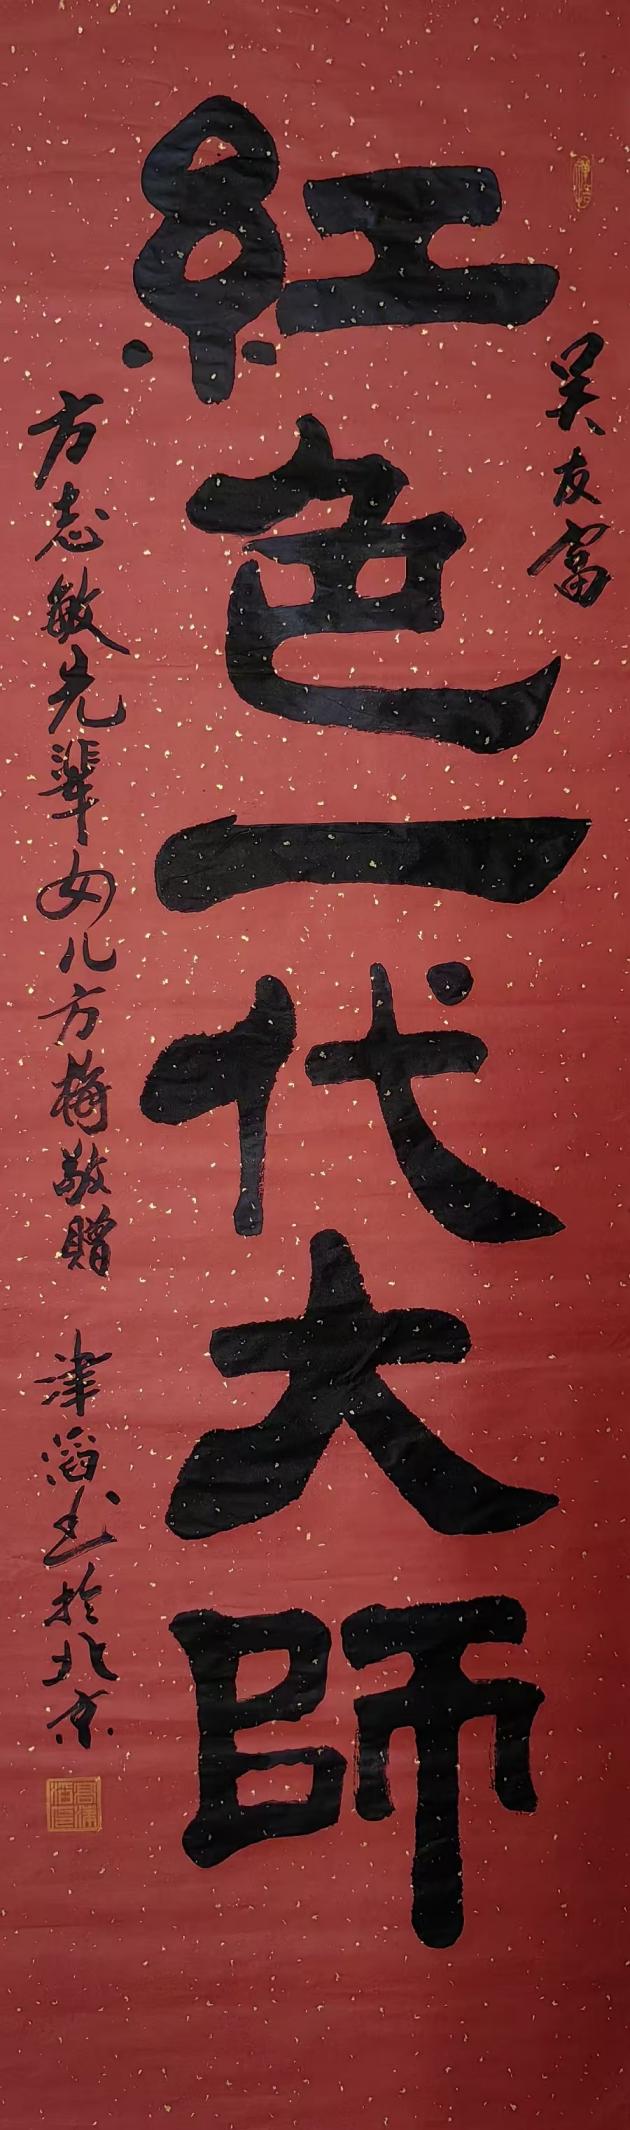 吴友富
紅色一代大師
方志敏先輩女儿方梅敬贈
津滔书於北京